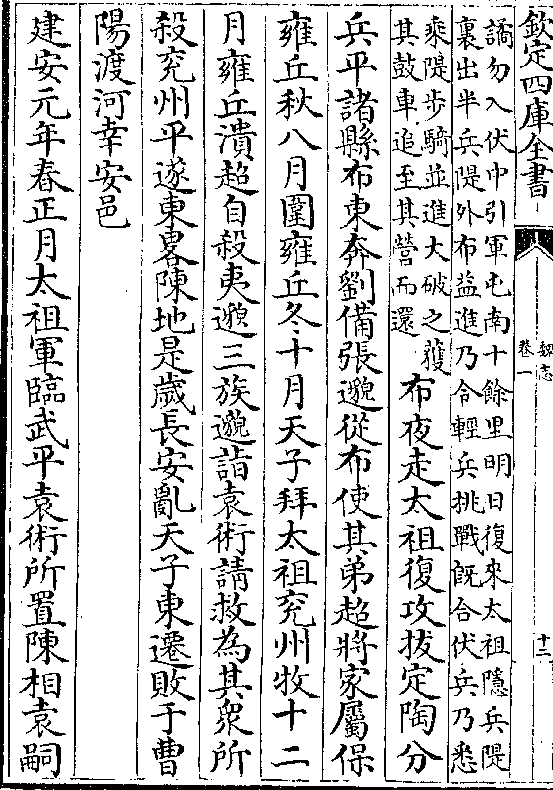 欽定四庫全書
魏志
卷一
十二
譎勿入伏中引軍屯南十餘里明日復來太祖隱兵隄
裏出半兵隄外布益進乃令輕兵挑戰旣合伏兵乃悉
乗隄步騎並進大破之獲
其鼓車追至其營而還
布夜走太祖復攻拔定陶分
兵平諸縣布東奔劉備張邈從布使其弟超將家屬保
雍丘秋八月圍雍丘冬十月天子拜太祖兖州牧十二
月雍丘潰超自殺夷邈三族邈詣袁術請救為其衆所
殺兖州平遂東畧陳地是歲長安亂天子東遷敗于曹
陽渡河幸安邑
建安元年春正月太祖軍臨武平袁術所置陳相袁嗣